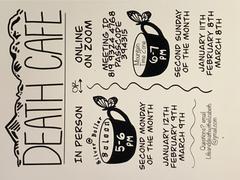 DEATH CAFE
IN PERSON
@
Silver Dollar
Saloon
5-6
PM
SECOND MONDAY
OF THE MONTH
JANUARY 12TH
FEBRUARY 9TH
MARCH 9TH
OR
ONLINE
ON ZOOM
MEETING ID
PASSCODE
6-7
PM
SECOND SUNDAY
OF THE MONTH
JANUARY 11TH
FEBRUARY 8TH
MARCH 8TH
Questions? email
@gmail.com